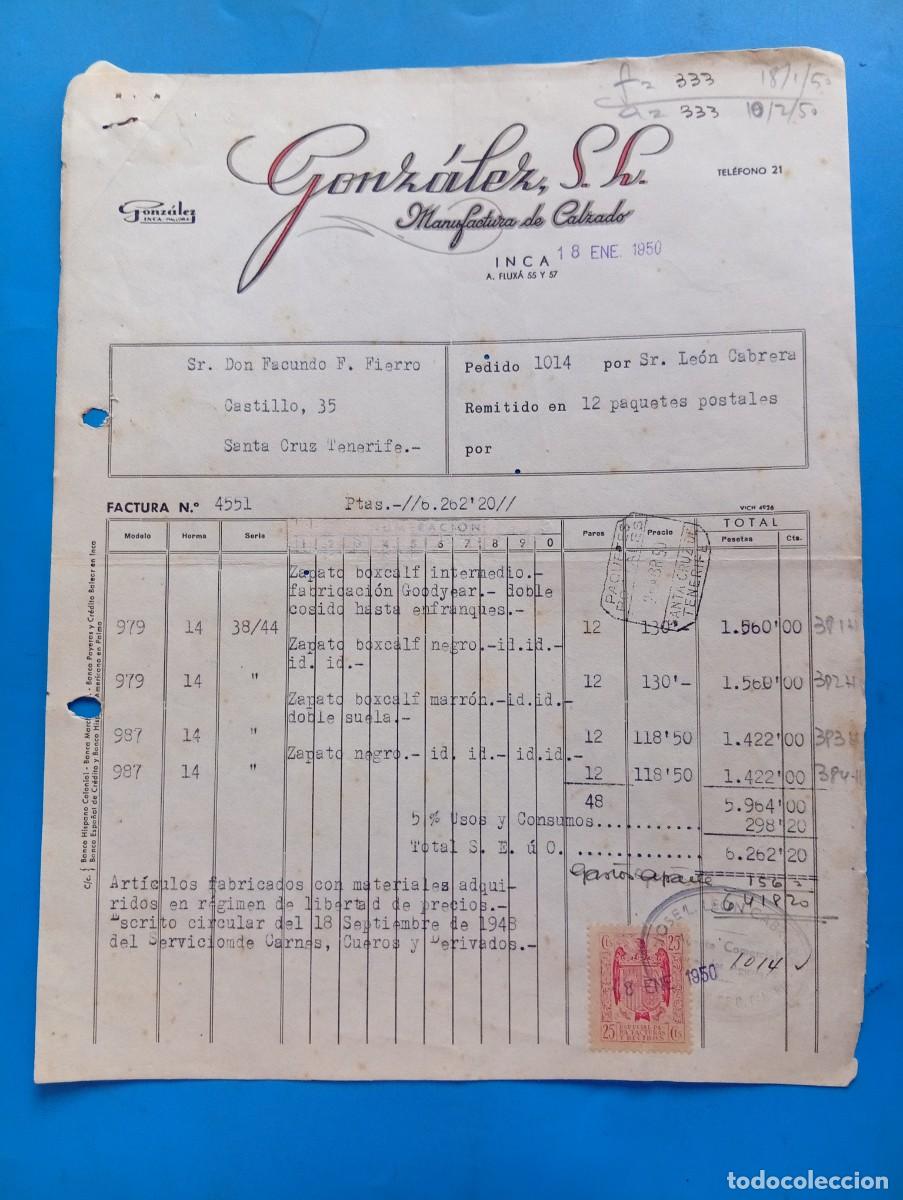 fª 333 18/1/50
333 10/2/50
González, S. L.
TELÉFONO 21
González
INCA
Manufactura de Calzado
INCA 18 ENE. 1950
A. FLUXÁ 55 Y 57
Sr. Don Facundo F. Fierro
Castillo, 35
Santa Cruz Tenerife.-
Pedido 1014 por Sr. León Cabrera
Remitido en 12 paquetes postales
por
FACTURA N.º 4551 Ptas.-//6.262'20//
VICH 4926
Modelo Horma Serie NUMERACIÓN Pares Precio TOTAL
1 2 3 4 5 6 7 8 9 0 Pesetas Cts.
Zapato boxcalf intermedio.-
fabricación Goodyear.- doble
cosido hasta enfranques.-
979 14 38/44 12 130'- 1.560'00
Zapato boxcalf negro.-id.id.-
id. id.-
979 14 " 12 130'- 1.560'00
Zapato boxcalf marrón.-id.id.-
doble suela.-
987 14 " 12 118'50 1.422'00
Zapato negro.- id. id.- id.id.-
987 14 " 12 118'50 1.422'00
48 5.964'00
5 % Usos y Consumos........... 298'20
Total S. E. ú O. ............ 6.262'20
Gastos aparte 156
6418 20
Artículos fabricados con materiales adqui-
ridos en régimen de libertad de precios.-
Escrito circular del 18 Septiembre de 1948
del Serviciomde Carnes, Cueros y Derivados.-
C/c. Banco Hispano Colonial - Banco March - Banco Payeras y Crédito Balear en Inca
Banco Español de Crédito y Banco Hispano Americano en Palma
SANTA CRUZ DE
TENERIFE
25 Cts
ESPECIAL PA-
RA FACTURAS
Y RECIBOS
18 ENE. 1950
JOSE L. LEON CABRERA
1014
todocoleccion
todocoleccion.net